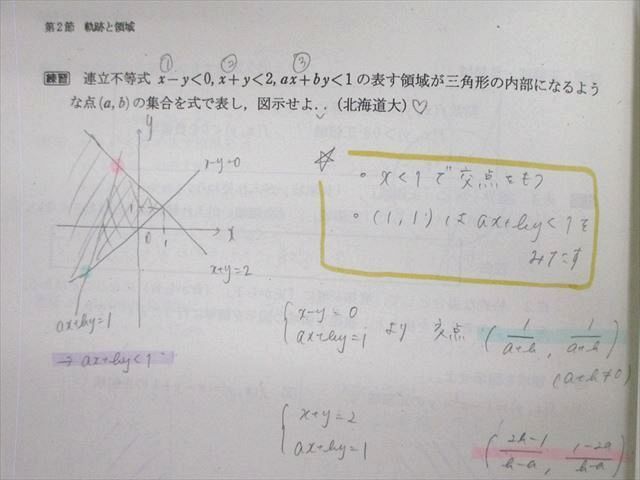 第2節 軌跡と領域
① ② ③
練習 連立不等式 x−y<0, x+y<2, ax+by<1 の表す領域が三角形の内部になるよう
な点(a, b)の集合を式で表し, 図示せよ. (北海道大)♡
y
x−y=0
1
0 1 x
x+y=2
ax+by=1
→ ax+by<1
☆
○ x<1で交点をもつ
○ (1,1)は ax+by<1を
みたす
{x−y=0
ax+by=1 より 交点 (1/(a+b), 1/(a+b))
(a+b≠0)
{x+y=2
ax+by=1 ((2b−1)/(b−a), (1−2a)/(b−a))